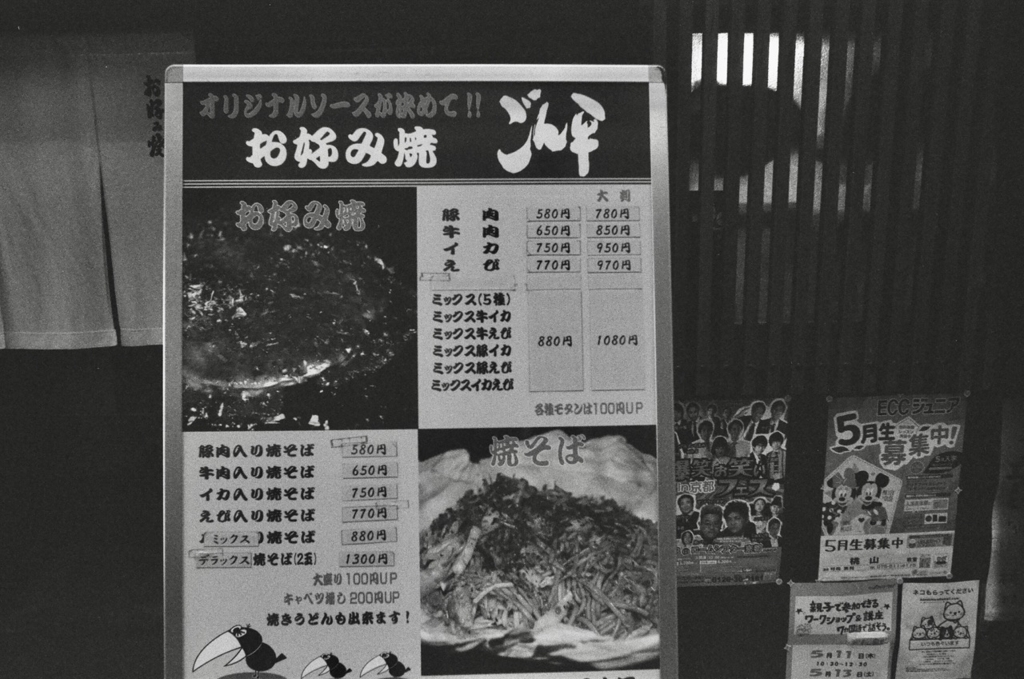 お好み焼
オリジナルソースが決めて!!
お好み焼 ごん平
お好み焼
大判
豚肉 580円 780円
牛肉 650円 850円
イカ 750円 950円
えび 770円 970円
ミックス(5種)
ミックス牛イカ
ミックス牛えび
ミックス豚イカ
ミックス豚えび
ミックスイカえび
880円 1080円
各種モダンは100円UP
豚肉入り焼そば 580円
牛肉入り焼そば 650円
イカ入り焼そば 750円
えび入り焼そば 770円
ミックス 焼そば 880円
デラックス 焼そば(2玉) 1300円
大盛り100円UP
キャベツ増し 200円UP
焼きうどんも出来ます!
焼そば
爆笑爆笑
in京都
フェス
ECCジュニア
5月生
募集中!
5月生募集中
桃山
親子で参加できる
ワークショップ&講座
5月11日(木)
10:30~12:30
5月13日(土)
ネコもらってください